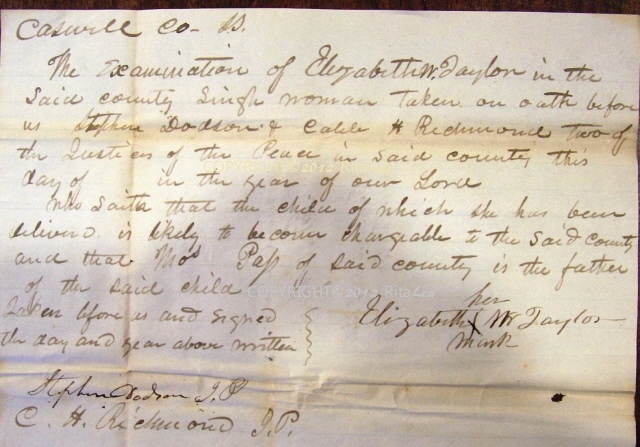 Caswell Co- SS.
The Examination of Elizabeth W. Taylor in the
Said county Single woman taken on oath before
us Stephen Dodson & Caleb H Richmond two of
the Justices of the Peace in said county this
day of in the year of our Lord
who saith that the child of which she has been
deliverd is likely to become chargeable to the said county
and that Mos Pass of said county is the father
of the said child
Taken before us and signed
the day and year above written
her
Elizabeth X W Taylor
mark
Stephen Dodson J.P
C. H. Richmond J.P.
COPYRIGHT©2012 RitaLea
COPYRIGHT©2012 RitaLea